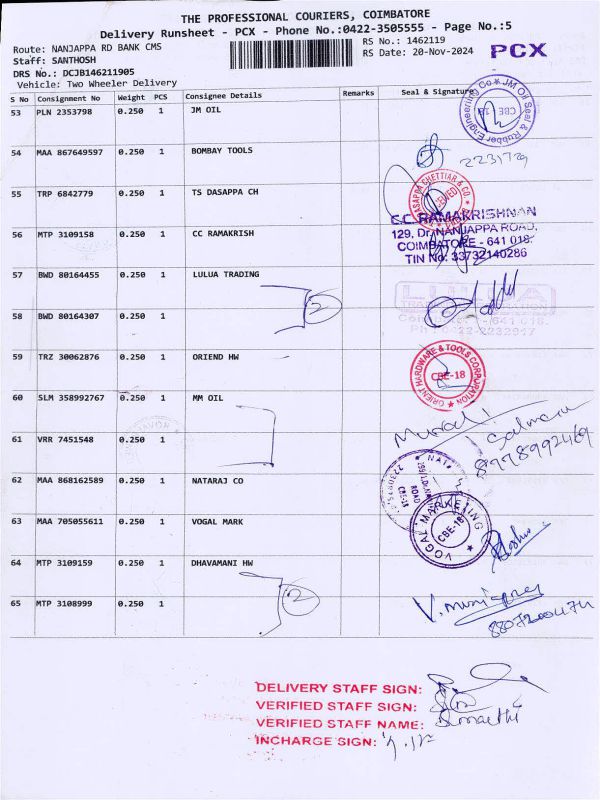 THE PROFESSIONAL COURIERS, COIMBATORE
Delivery Runsheet - PCX - Phone No.:0422-3505555 - Page No.:5
Route: NANJAPPA RD BANK CMS
RS No.: 1462119
Staff: SANTHOSH
RS Date: 20-Nov-2024
PCX
DRS No.: DCJB146211905
Vehicle: Two Wheeler Delivery
S No Consignment No Weight PCS Consignee Details Remarks Seal & Signature
53 PLN 2353798 0.250 1 JM OIL
JM Oil Seal & Rubber Engineering Co
CBE
54 MAA 867649597 0.250 1 BOMBAY TOOLS
2231729
55 TRP 6842779 0.250 1 TS DASAPPA CH
DASAPPA CHETTIAR & CO
56 MTP 3109158 0.250 1 CC RAMAKRISH
C.C. RAMAKRISHNAN
129, Dr. NANJAPPA ROAD,
COIMBATORE - 641 018.
TIN No: 33732140286
57 BWD 80164455 0.250 1 LULUA TRADING
2
LULUA
58 BWD 80164307 0.250 1
59 TRZ 30062876 0.250 1 ORIEND HW
ORIENT HARDWARE & TOOLS CORPORATION
CBE-18
60 SLM 358992767 0.250 1 MM OIL
Murali
Salmara
8778992469
61 VRR 7451548 0.250 1
62 MAA 868162589 0.250 1 NATARAJ CO
ROAD
CBE-18
63 MAA 705055611 0.250 1 VOGAL MARK
VOGAL MARKETING
CBE-18
64 MTP 3109159 0.250 1 DHAVAMANI HW
2
65 MTP 3108999 0.250 1
DELIVERY STAFF SIGN:
VERIFIED STAFF SIGN:
VERIFIED STAFF NAME:
INCHARGE SIGN: